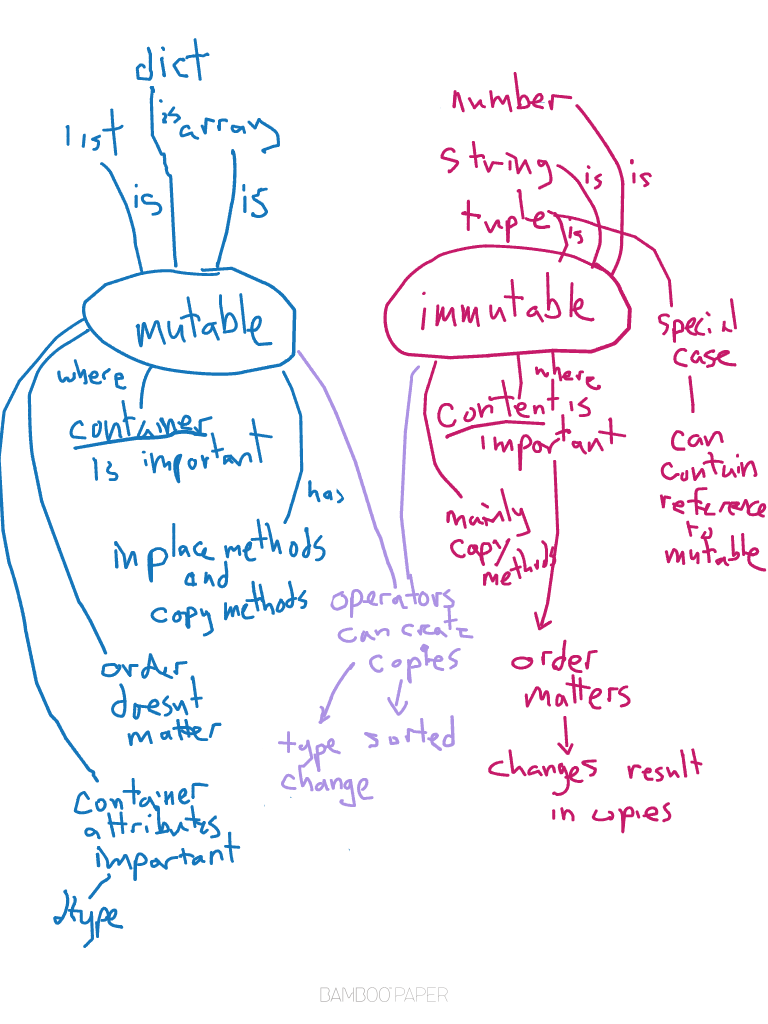 dict
list
is
array
is
is
mutable
where
container
is important
has
inplace methods
and
copy methods
order
doesnt
matter
container
attributes
important
type
operators
can create
copies
type
change
sorted
number
string
tuple
is
is
is
immutable
special
case
can
contain
reference
to
mutable
where
content is
important
mainly
copy
methods
order
matters
changes result
in copies
BAMBOO PAPER